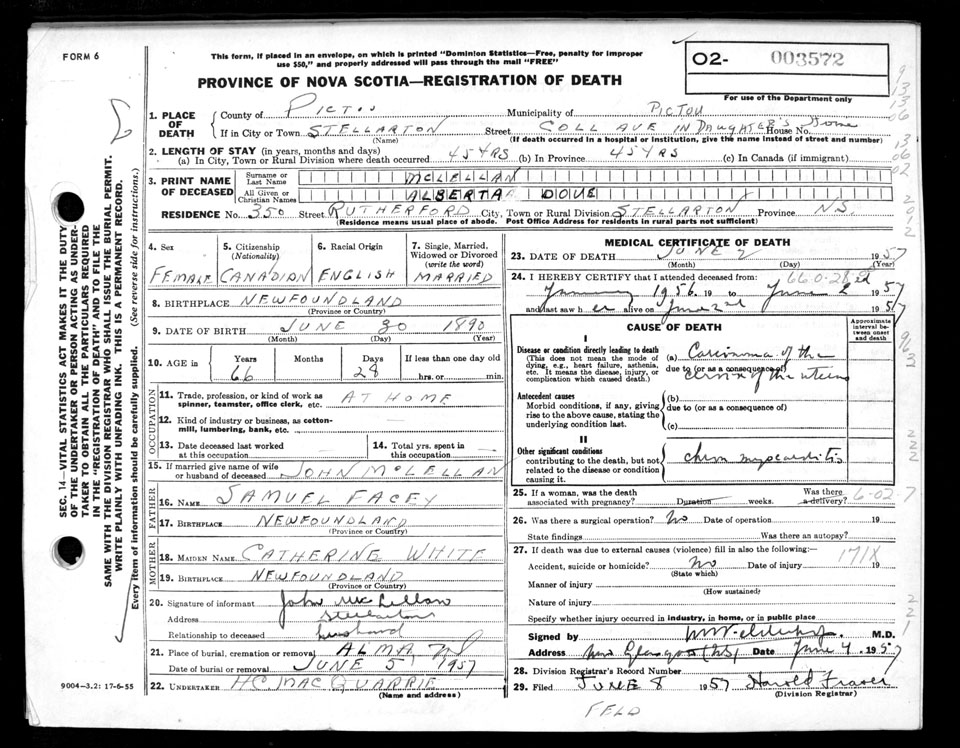 FORM 6
This form, if placed in an envelope, on which is printed "Dominion Statistics—Free, penalty for improper
use $50," and properly addressed will pass through the mail "FREE"
PROVINCE OF NOVA SCOTIA—REGISTRATION OF DEATH
02- 003572
For use of the Department only
1. PLACE OF DEATH
County of PICTOU Municipality of PICTOU
If in City or Town STELLARTON Street COLL AVE IN DAUGHTER'S House No. Home
(Name) (If death occurred in a hospital or institution, give the name instead of street and number)
2. LENGTH OF STAY (in years, months and days)
(a) In City, Town or Rural Division where death occurred 45 YRS (b) In Province 45 YRS (c) In Canada (if immigrant)
3. PRINT NAME OF DECEASED
Surname or Last Name MCLELLAN
All Given or Christian Names ALBERTA DOVE
RESIDENCE No. 350 Street RUTHERFORD City, Town or Rural Division STELLARTON Province N.S.
(Residence means usual place of abode. Post Office Address for residents in rural parts not sufficient)
4. Sex FEMALE
5. Citizenship (Nationality) CANADIAN
6. Racial Origin ENGLISH
7. Single, Married, Widowed or Divorced (write the word) MARRIED
8. BIRTHPLACE NEWFOUNDLAND
(Province or Country)
9. DATE OF BIRTH JUNE 30 1890
(Month) (Day) (Year)
10. AGE in Years 66 Months Days 28 If less than one day old hrs. or min.
OCCUPATION
11. Trade, profession, or kind of work as spinner, teamster, office clerk, etc. AT HOME
12. Kind of industry or business, as cotton-mill, lumbering, bank, etc.
13. Date deceased last worked at this occupation
14. Total yrs. spent in this occupation
15. If married give name of wife or husband of deceased JOHN MCLELLAN
FATHER
16. NAME SAMUEL FACEY
17. BIRTHPLACE NEWFOUNDLAND
(Province or Country)
MOTHER
18. MAIDEN NAME CATHERINE WHITE
19. BIRTHPLACE NEWFOUNDLAND
(Province or Country)
20. Signature of informant John McLellan
Address Stellarton
Relationship to deceased husband
21. Place of burial, cremation or removal ALMA NS
Date of burial or removal JUNE 5 1957
22. UNDERTAKER HC MACQUARRIE
(Name and address)
9004—3.2: 17-6-55
MEDICAL CERTIFICATE OF DEATH
23. DATE OF DEATH JUNE 2 1957
(Month) (Day) (Year)
660-28
24. I HEREBY CERTIFY that I attended deceased from:
January 1956 19 to June 2nd 1957
and last saw her alive on June 2nd 1957
CAUSE OF DEATH
Approximate interval between onset and death
I
Disease or condition directly leading to death
(This does not mean the mode of dying, e.g., heart failure, asthenia, etc. It means the disease, injury, or complication which caused death.)
(a) Carcinoma of the
due to (or as a consequence of)
cervix of the uterus
Antecedent causes
Morbid conditions, if any, giving rise to the above cause, stating the underlying condition last.
(b)
due to (or as a consequence of)
(c)
II
Other significant conditions
contributing to the death, but not related to the disease or condition causing it.
chron myocarditis
25. If a woman, was the death associated with pregnancy? Duration weeks. Was there a delivery?
6-02 7
26. Was there a surgical operation? No Date of operation 19
State findings Was there an autopsy?
27. If death was due to external causes (violence) fill in also the following:— 171X
Accident, suicide or homicide? No Date of injury 19
(State which)
Manner of injury
(How sustained)
Nature of injury
Specify whether injury occurred in industry, in home, or in public place
Signed by M.D.
Address New Glasgow (NS) Date June 4 1957
28. Division Registrar's Record Number
29. Filed JUNE 8 1957 Harold Fraser
(Division Registrar)
FELD
SEC. 14—VITAL STATISTICS ACT MAKES IT THE DUTY
OF THE UNDERTAKER OR PERSON ACTING AS UNDER-
TAKER TO OBTAIN ALL THE PARTICULARS REQUIRED
IN THE "REGISTRATION OF DEATH" AND TO FILE THE
SAME WITH THE DIVISION REGISTRAR WHO SHALL ISSUE THE BURIAL PERMIT.
WRITE PLAINLY WITH UNFADING INK. THIS IS A PERMANENT RECORD.
Every item of information should be carefully supplied. (See reverse side for instructions.)